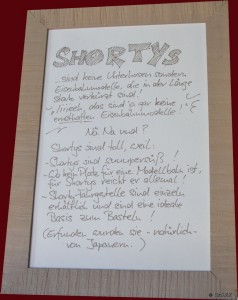 SHORTYs
...sind keine Unterhosen sondern
Eisenbahnmodelle, die in der Länge
stark verkürzt sind!
"Iiieeh, das sind ja gar keine
ernsthaften Eisenbahnmodelle!"
Na Na und?
Shortys sind toll, weil:
- Shortys sind supersüß!
- Wo kein Platz für eine Modellbahn ist,
für Shortys reicht er allemal!
- Shorty-Fahrgestelle sind einzeln
erhältlich und sind eine ideale
Basis zum Basteln!
(Erfunden wurden sie - natürlich -
von Japanern.)